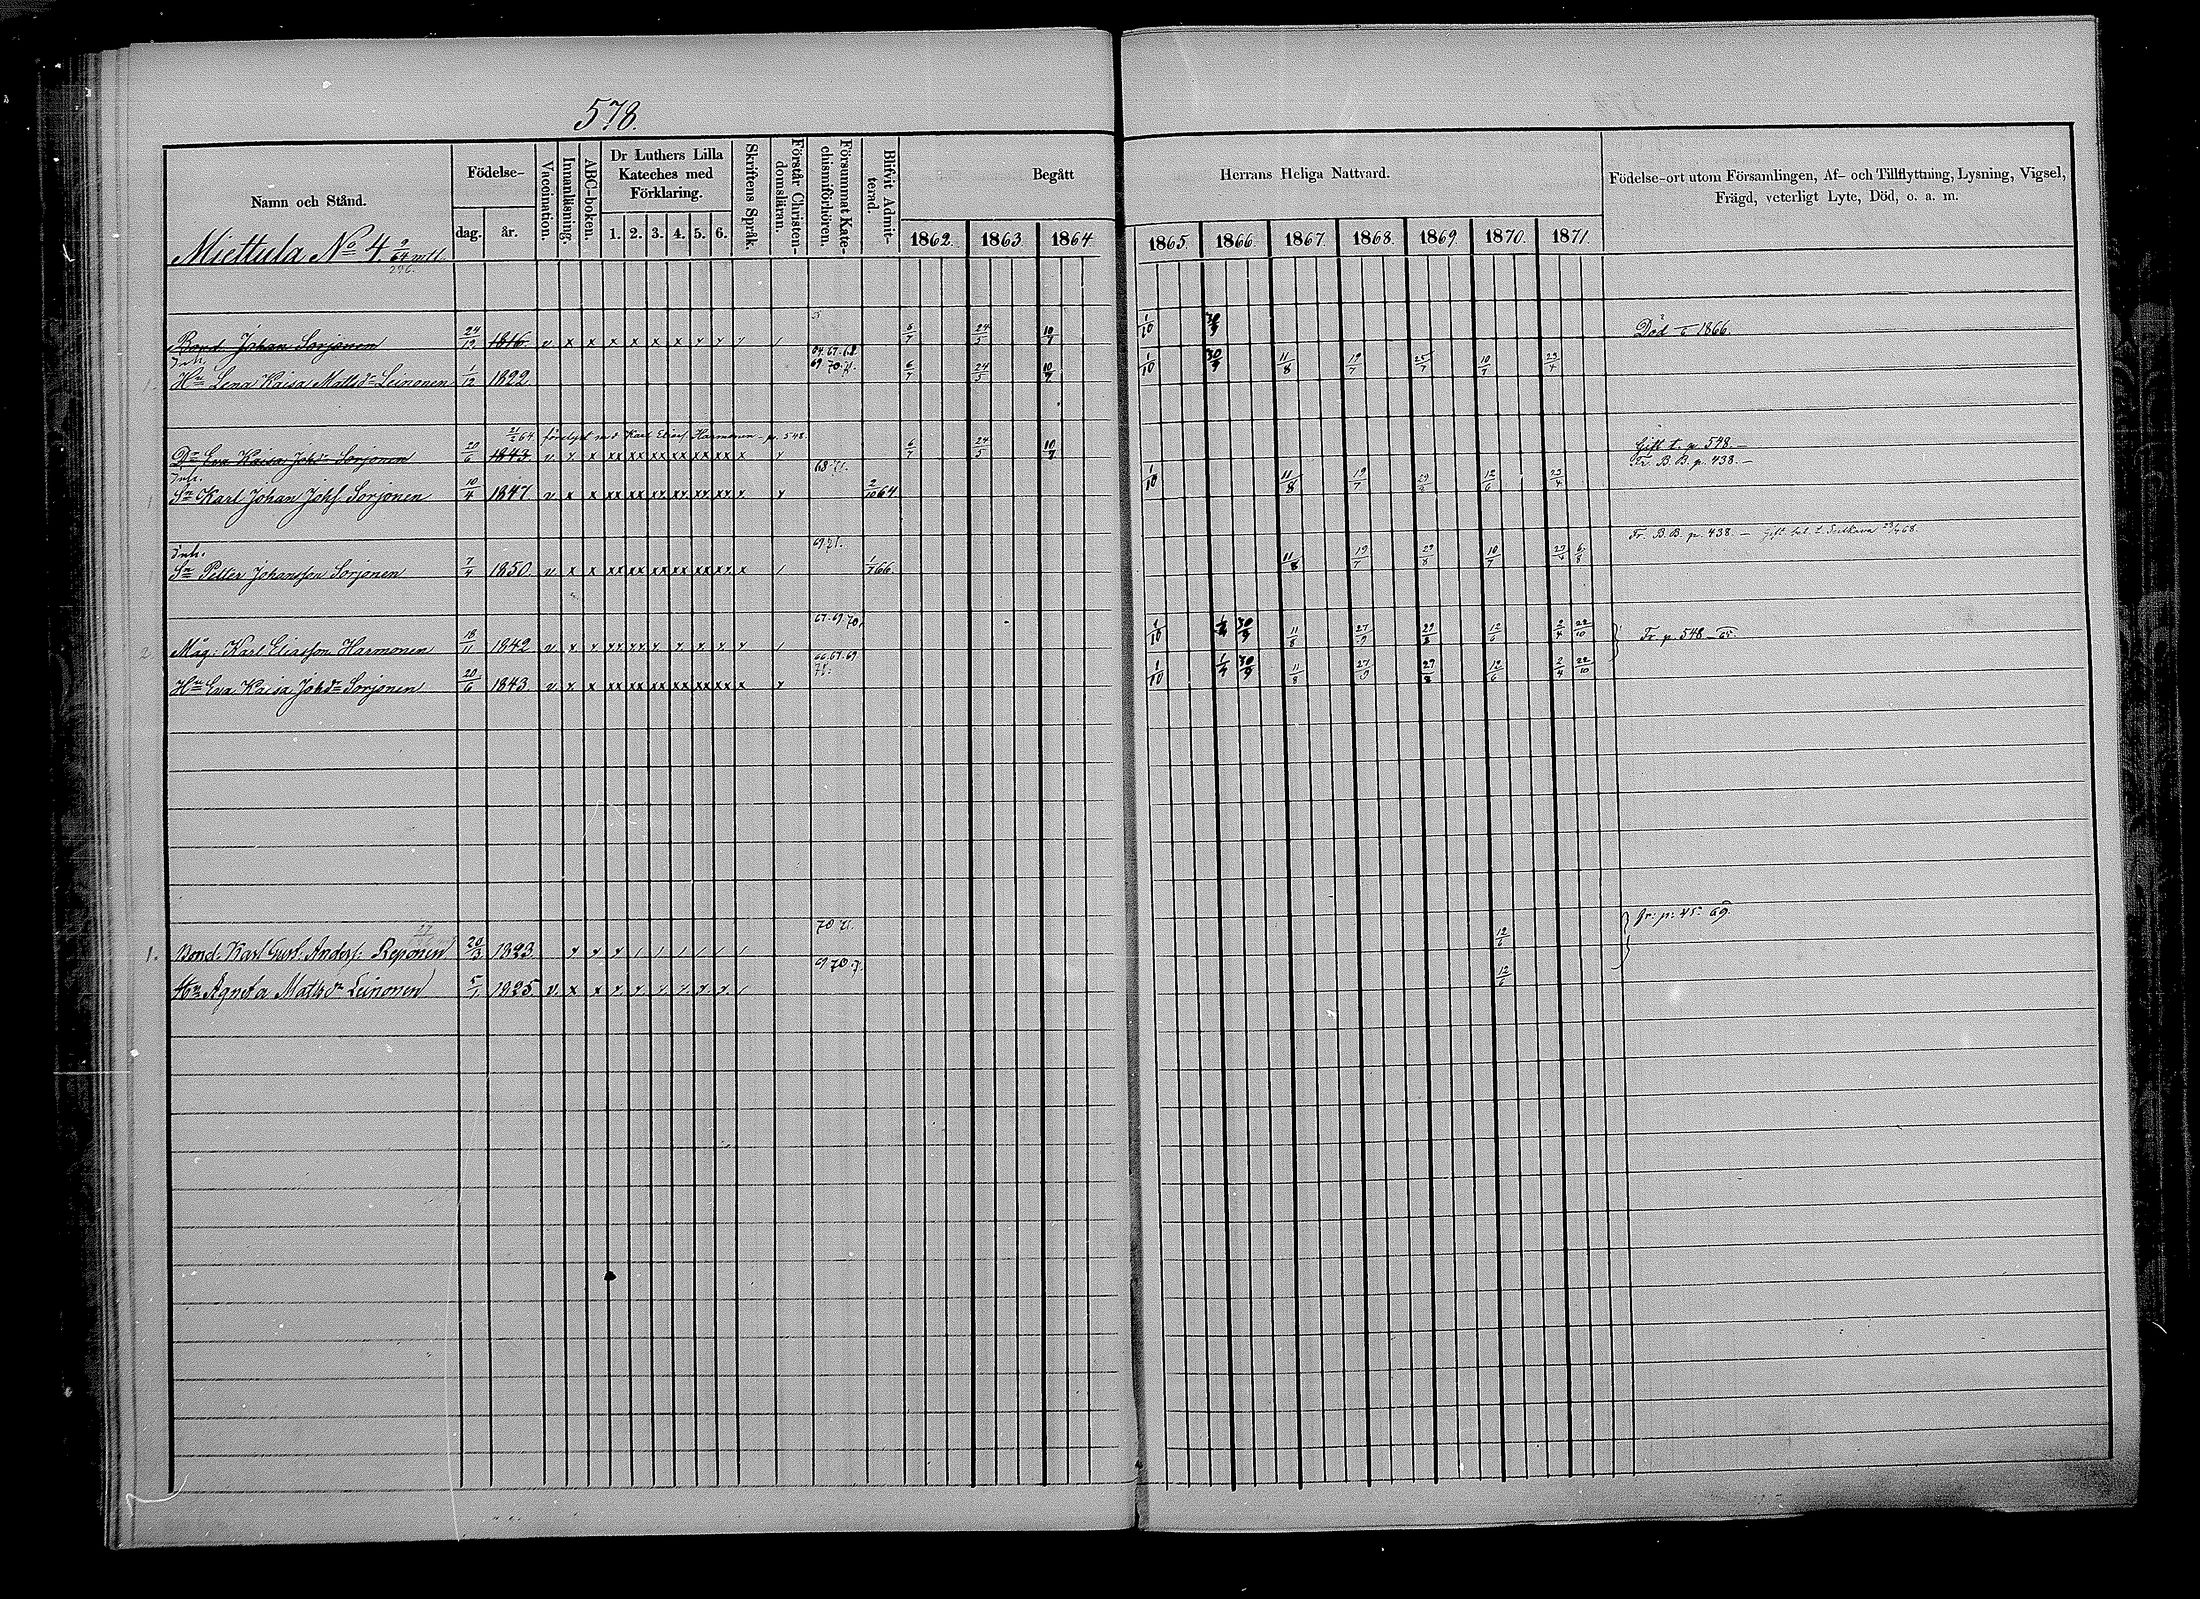 578.
Namn och Stånd.
Födelse-
dag.
år.
Vaccination.
Innanläsning.
ABC-boken.
Dr Luthers Lilla
Kateches med
Förklaring.
1. 2. 3. 4. 5. 6.
Skriftens Språk.
Förstår Christen-
domsläran.
Försummat Kate-
chismiförhören.
Blifvit Admit-
terad.
Begått
Herrans Heliga Nattvard.
1862. 1863. 1864.
1865. 1866. 1867. 1868. 1869. 1870. 1871.
Födelse-ort utom Församlingen, Af- och Tillflyttning, Lysning, Vigsel,
Frägd, veterligt Lyte, Död, o. a. m.
Miettula No 4. 9/64 mtl.
Bond. Johan Sorjonen 24/12 1816. v x x x x x x 6/7 24/5 10/7 1/10 30/9 Död 1866.
Inh. 64. 67. 68.
Hu Lena Kaisa Mattsdr Leinonen 1/12 1822 69. 70. 71. 6/7 24/5 10/7 1/10 30/9 11/8 19/7 25/7 10/7 23/4
21/2 64 Karl Eliass Harmonen - p. 548
Dr Eva Kaisa Johdr Sorjonen 20/6 1843. v x x xx xx xx xx xx xx x 6/7 24/5 10/7 Gift t. p. 548.—
Inh. 68. 71. Fr. B. B. p. 438.—
Sn Karl Johan Johs Sorjonen 10/4 1847 v x x 2/10 64 1/10 11/8 19/7 29/8 12/6 23/4
Inh. 69. 71. Fr. B. B. p. 438.—
Sn Petter Johansson Sorjonen 7/4 1850 v x x xx xx xx xx xx xx x 1/7 66. 11/8 19/7 29/8 10/7 23/4 6/8
67. 69. 70.
2. Måg. Karl Eliasson Harmonen 18/11 1842 v x 1/10 1/4 30/9 11/8 27/9 29/8 12/6 2/4 22/10 Fr. p. 548.— 65.
66. 67. 69.
71.
Hu Eva Kaisa Johdr Sorjonen 20/6 1843 v x x xx xx xx xx xx xx x 1/10 1/4 30/9 11/8 27/9 29/8 12/6 2/4 22/10
70. 71. fr: p: 45. 69.
1. Bond. Karl Gust. Anders: Reponen 20/3 1823 12/6
69. 70. 71.
Hu Agneta Mattsdr Leinonen 5/1 1825 v. x x 12/6